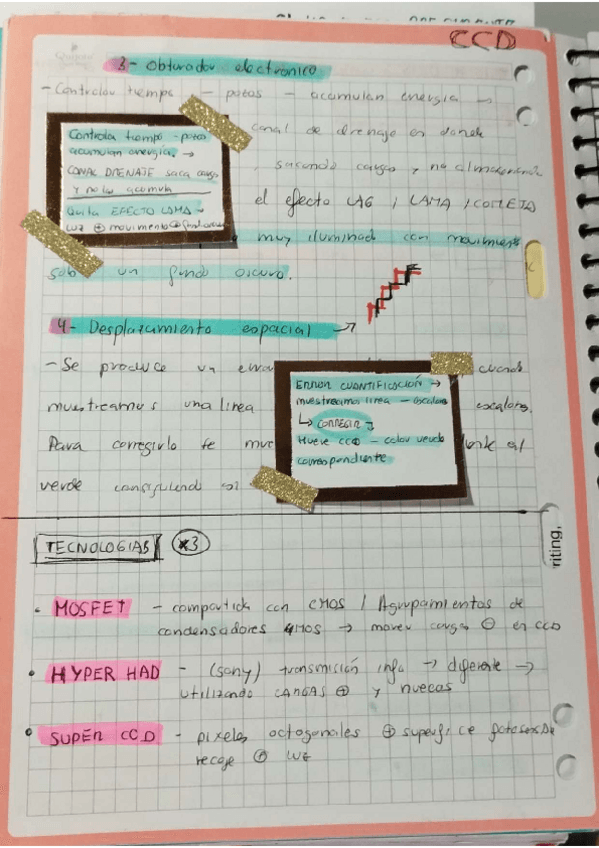 CCD
3- Obturador electrónico
- Controlar tiempo - patas - acumulan energía →
canal de drenaje en donde
sacando cargas y no almacenando
el efecto LAG / LAMA / COMETA
muy iluminado con movimiento
sob un fondo oscuro.
Controla tiempo - patas
acumulan energía. →
CANAL DRENAJE saca cargas
y no las acumula
Quita EFECTO LAMA -
luz ⊕ movimiento ⊕
4- Desplazamiento espacial →
- Se produce un cuando
muestreamos una línea escalera.
Para corregirlo te mue al
verde
ERROR CUANTIFICACIÓN →
muestreamos línea - escalera
↳ CORREGIR ↴
Mueve CCD - color verde
correspondiente
riting,
TECNOLOGIAS x3
• MOSFET - compartida con CMOS / Agrupamientos de
condensadores MOS → mover cargas ⊖ en CCD
• HYPER HAD - (sony) transmisión info → diferente →
utilizando CARGAS ⊕ y huecos
• SUPER CCD - pixeles octogonales ⊕ superficie fotosensible
recoge ⊕ luz